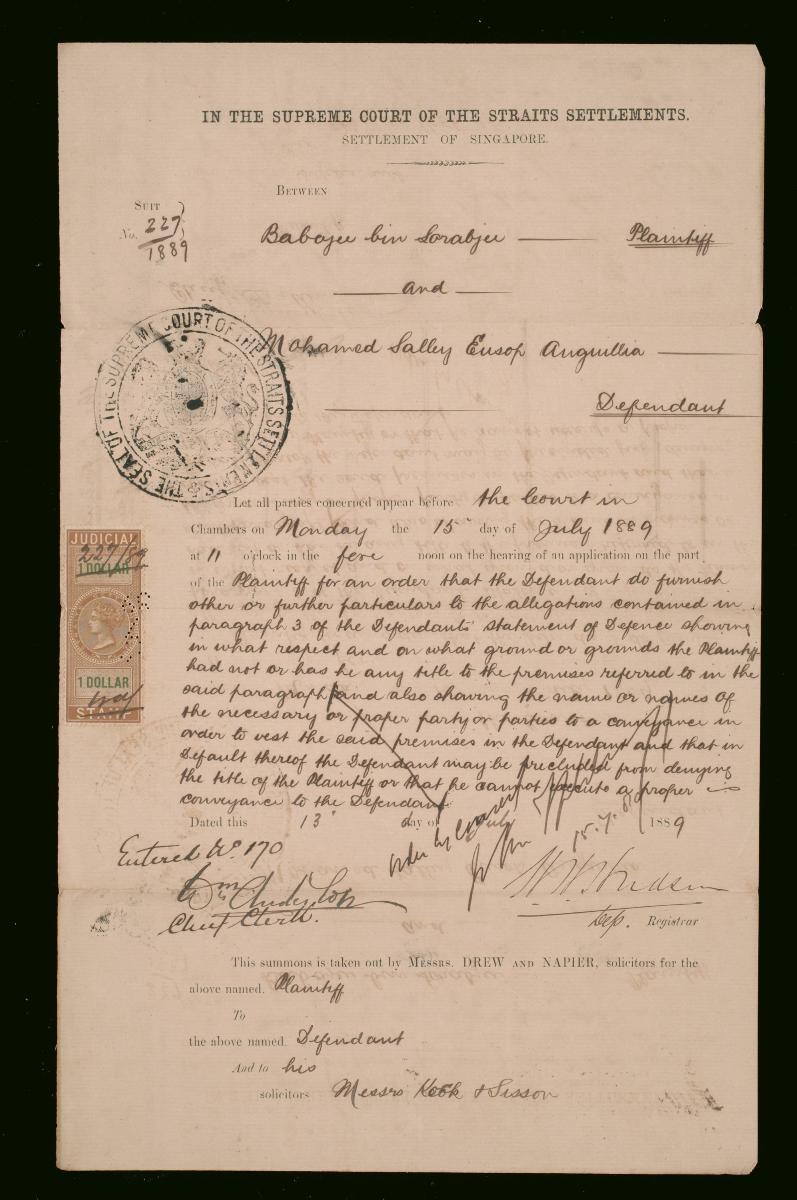 IN THE SUPREME COURT OF THE STRAITS SETTLEMENTS.
SETTLEMENT OF SINGAPORE.
BETWEEN
SUIT
No. 227
1889
Babajee bin Sorabjee Plaintiff
and
Mohamed Salley Eusop Anguillia
Defendant
THE SEAL OF THE SUPREME COURT OF THE STRAITS SETTLEMENTS
Let all parties concerned appear before the Court in
Chambers on Monday the 15 day of July 1889
at 11 o'clock in the fore noon on the hearing of an application on the part
of the Plaintiff for an order that the Defendant do furnish
other or further particulars to the allegations contained in
paragraph 3 of the Defendants statement of Defence showing
in what respect and on what ground or grounds the Plaintiff
had not or has he any title to the premises referred to in the
said paragraph and also showing the name or names of
the necessary or proper party or parties to a conveyance in
order to vest the said premises in the Defendant and that in
Default thereof the Defendant may be precluded from denying
the title of the Plaintiff or that he cannot execute a proper
conveyance to the Defendant
JUDICIAL
227/89
1 DOLLAR
1 DOLLAR
STAMP
Dated this 13 day of July 1889
Order by consent
15.7.
Entered No. 170
Chief Clerk.
Dep. Registrar
This summons is taken out by MESSRS. DREW AND NAPIER, solicitors for the
above named. Plaintiff
To
the above named. Defendant
And to his
solicitors Messrs Kook & Sisson